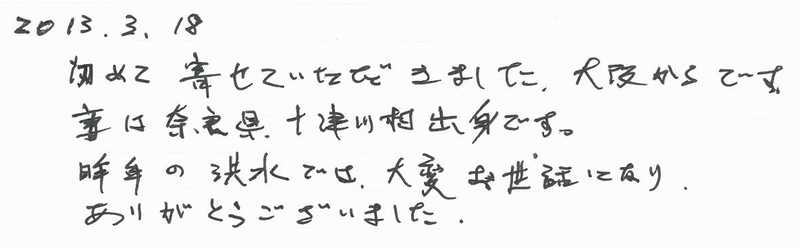 2013.3.18
初めて寄せていただきました.大阪からです
妻は奈良県.十津川村出身です。
昨年の洪水では.大変お世話になり.
ありがとうございました.